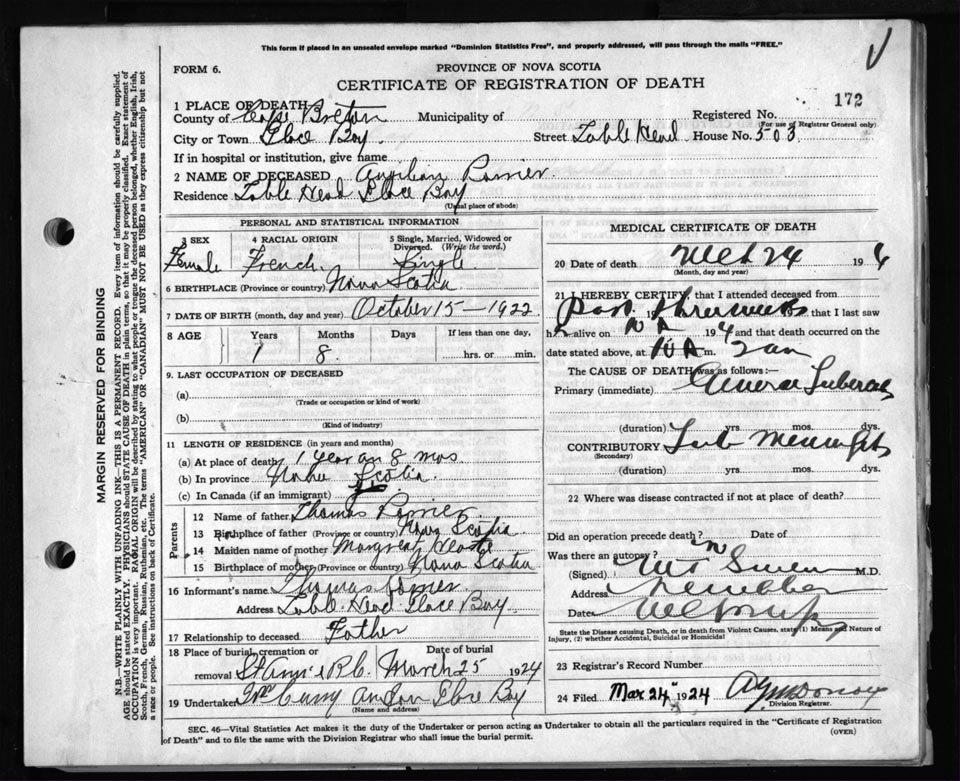 This form if placed in an unsealed envelope marked "Dominion Statistics Free", and properly addressed, will pass through the mails "FREE."
FORM 6.
PROVINCE OF NOVA SCOTIA
CERTIFICATE OF REGISTRATION OF DEATH
172
1 PLACE OF DEATH
County of Cape Breton Municipality of Registered No.
(For use of Registrar General only)
City or Town Glace Bay. Street Table Head House No. 503
If in hospital or institution, give name
2 NAME OF DECEASED
Residence Table Head Glace Bay
(Usual place of abode)
PERSONAL AND STATISTICAL INFORMATION
3 SEX 4 RACIAL ORIGIN 5 Single, Married, Widowed or Divorced. (Write the word.)
Female French. Single
6 BIRTHPLACE (Province or country) Nova Scotia
7 DATE OF BIRTH (month, day and year). October 15 — 1922
8 AGE Years Months Days If less than one day,
1 8. hrs. or min.
9. LAST OCCUPATION OF DECEASED
(a)
(Trade or occupation or kind of work)
(b)
(Kind of industry)
11 LENGTH OF RESIDENCE (in years and months)
(a) At place of death 1 year an 8 mos
(b) In province Nova Scotia.
(c) In Canada (if an immigrant)
Parents
12 Name of father Thomas
13 Birthplace of father (Province or country) Nova Scotia
14 Maiden name of mother
15 Birthplace of mother (Province or country) Nova Scotia
16 Informant's name Thomas
Address Table Head Glace Bay
17 Relationship to deceased Father
18 Place of burial, cremation or removal Date of burial
R.C. March 25 1924
19 Undertaker an Son Glace Bay
(Name and address)
MEDICAL CERTIFICATE OF DEATH
20 Date of death 24 192 4
(Month, day and year)
21 I HEREBY CERTIFY, that I attended deceased from
past three weeks that I last saw
h alive on 192 4 and that death occurred on the
date stated above, at m. 2 am
The CAUSE OF DEATH was as follows:—
Primary (immediate) General
(duration) yrs. mos. dys.
CONTRIBUTORY Tub
(Secondary)
(duration) yrs. mos. dys.
22 Where was disease contracted if not at place of death?
Did an operation precede death? Date of
Was there an autopsy? no
(Signed) M.D.
Address
Date
State the Disease causing Death, or in death from Violent Causes, state (1) Means and Nature of Injury, (2) whether Accidental, Suicidal or Homicidal
23 Registrar's Record Number
24 Filed Mar 24" 1924
Division Registrar.
SEC. 46—Vital Statistics Act makes it the duty of the Undertaker or person acting as Undertaker to obtain all the particulars required in the "Certificate of Registration of Death" and to file the same with the Division Registrar who shall issue the burial permit.
(OVER)
MARGIN RESERVED FOR BINDING
N.B.—WRITE PLAINLY WITH UNFADING INK—THIS IS A PERMANENT RECORD. Every item of information should be carefully supplied.
AGE should be stated EXACTLY. PHYSICIANS should STATE CAUSE OF DEATH in plain terms, so that it may be properly classified. Exact statement of
OCCUPATION is very important. RACIAL ORIGIN will be described by stating to what people or tongue the deceased person belonged, whether English, Irish,
Scotch, French, German, Russian, Ruthenian, etc. The terms "AMERICAN" OR "CANADIAN" MUST NOT BE USED as they express citizenship but not
a race or people. See instructions on back of Certificate.